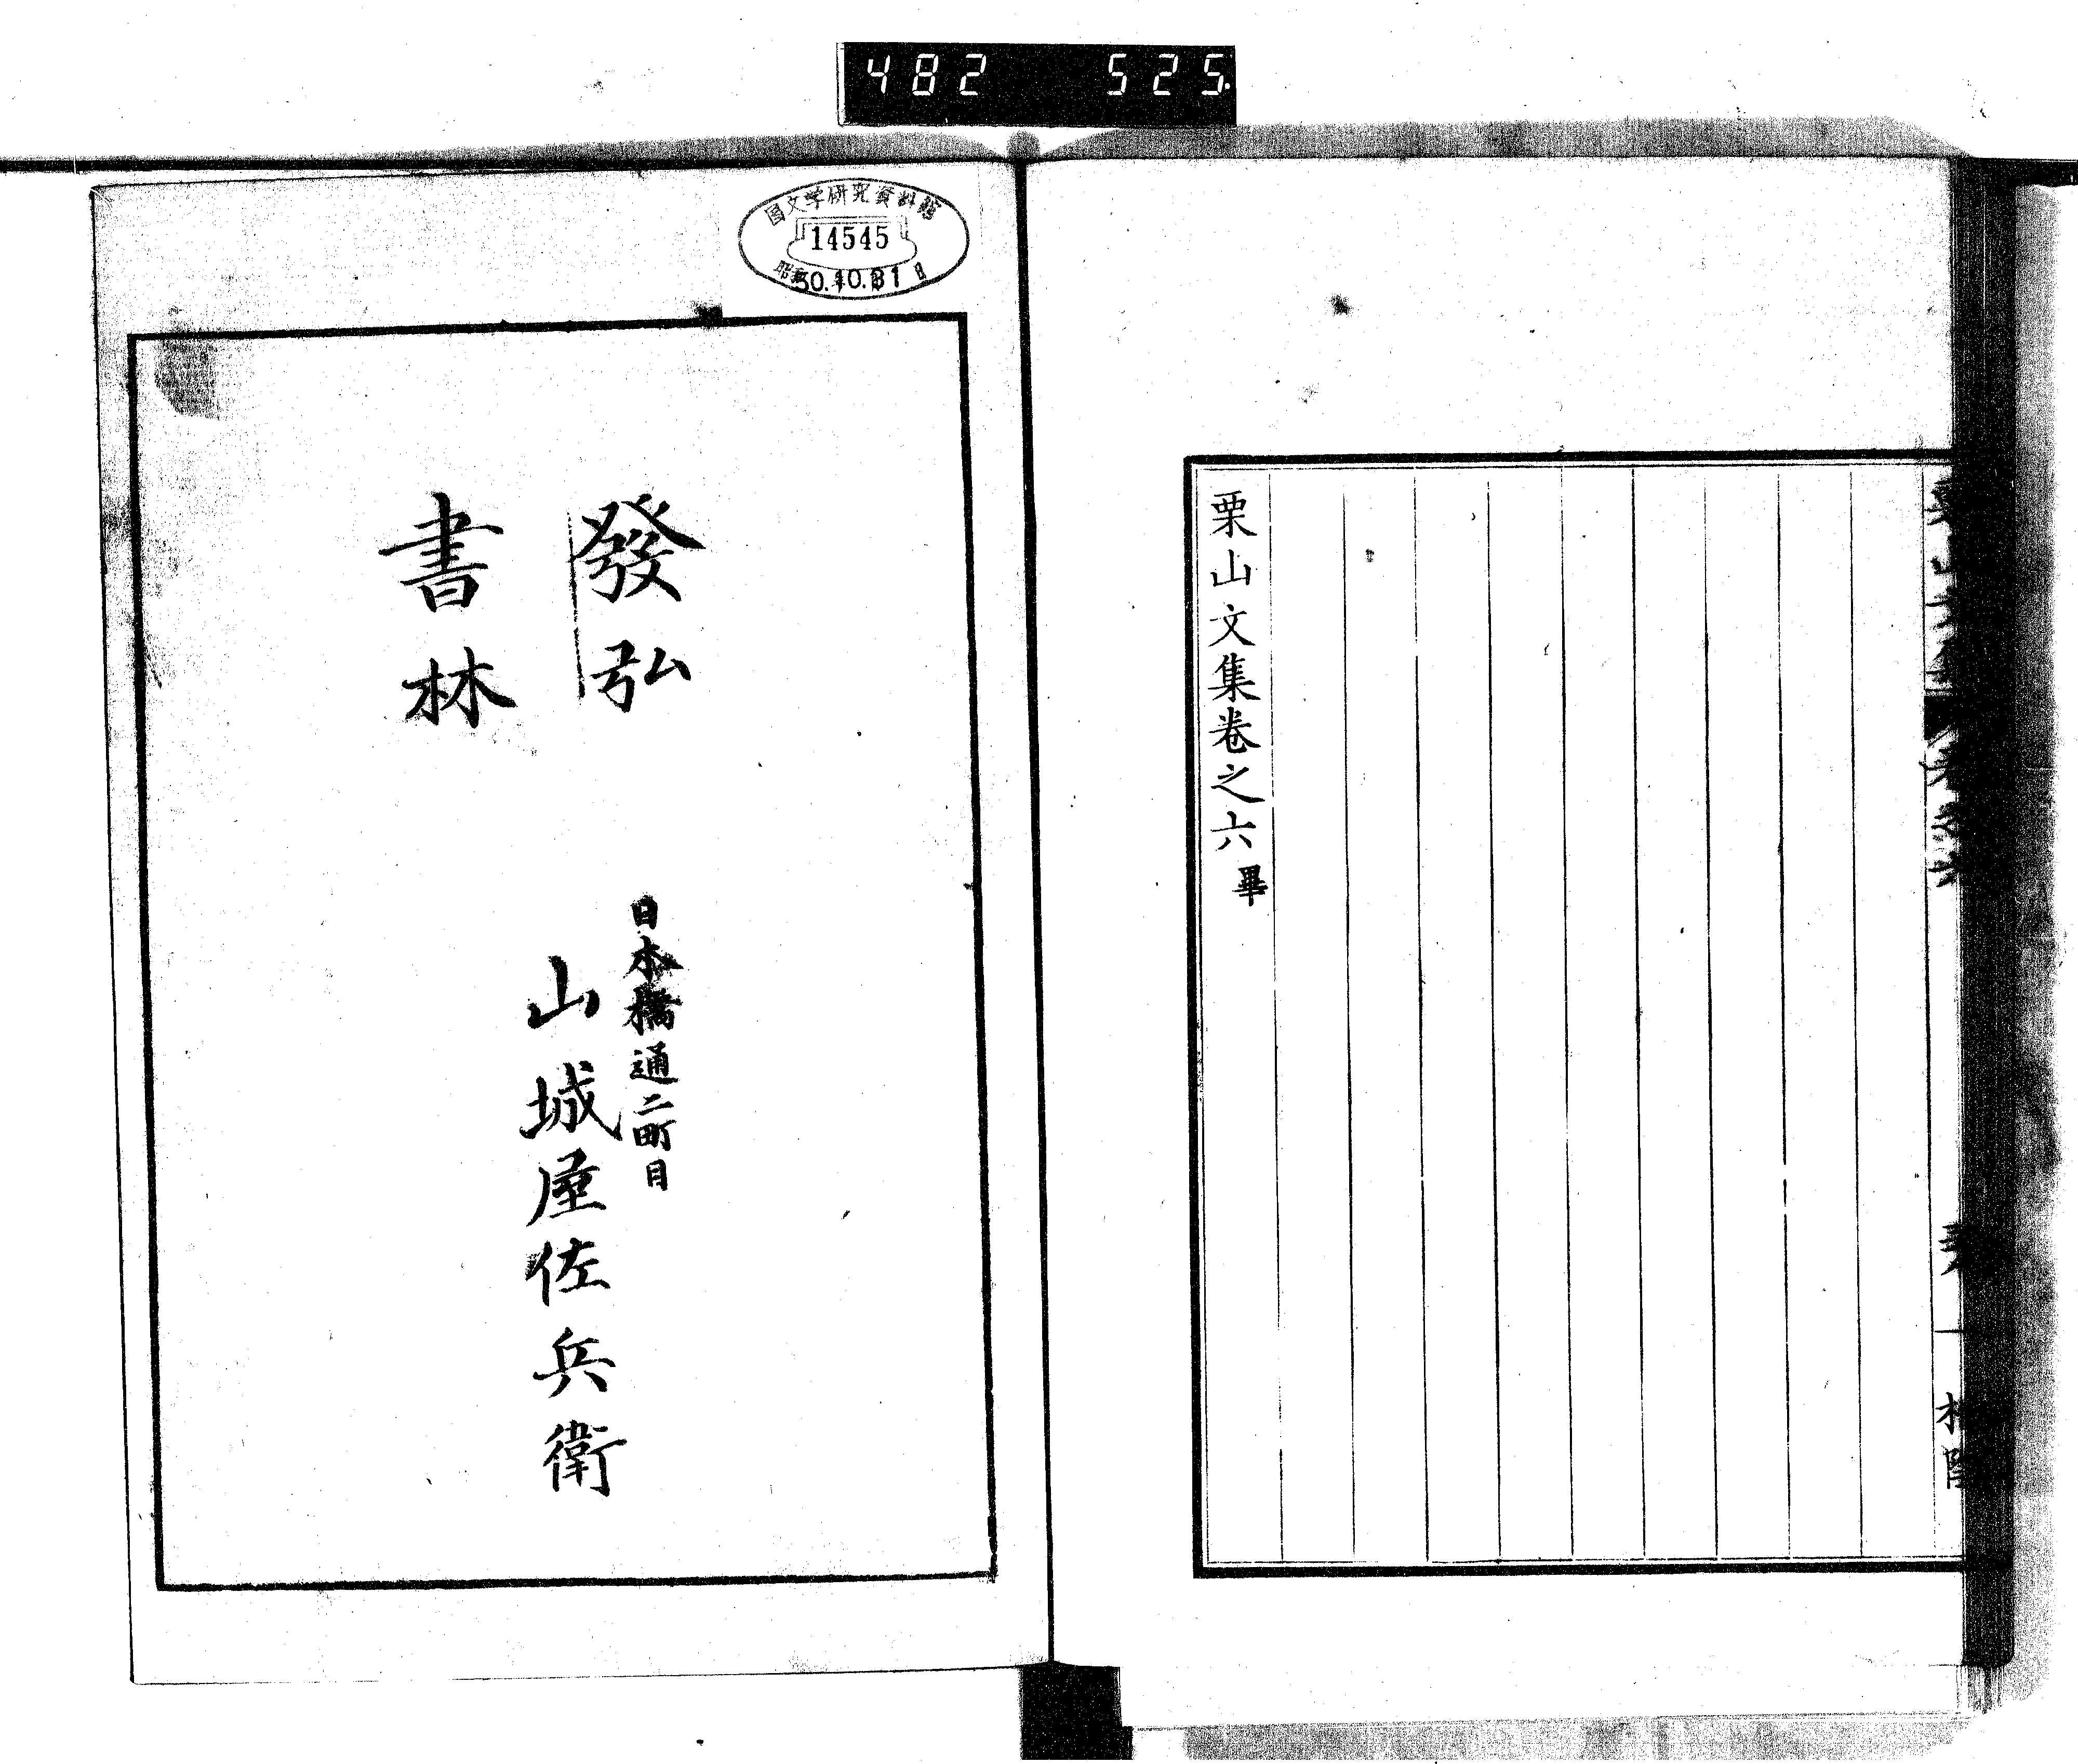 482 525
栗山文集卷之六畢
國文学研究資料館
14545
昭和50.10.31日
發弘
書林
日本橋通二町目
山城屋佐兵衛